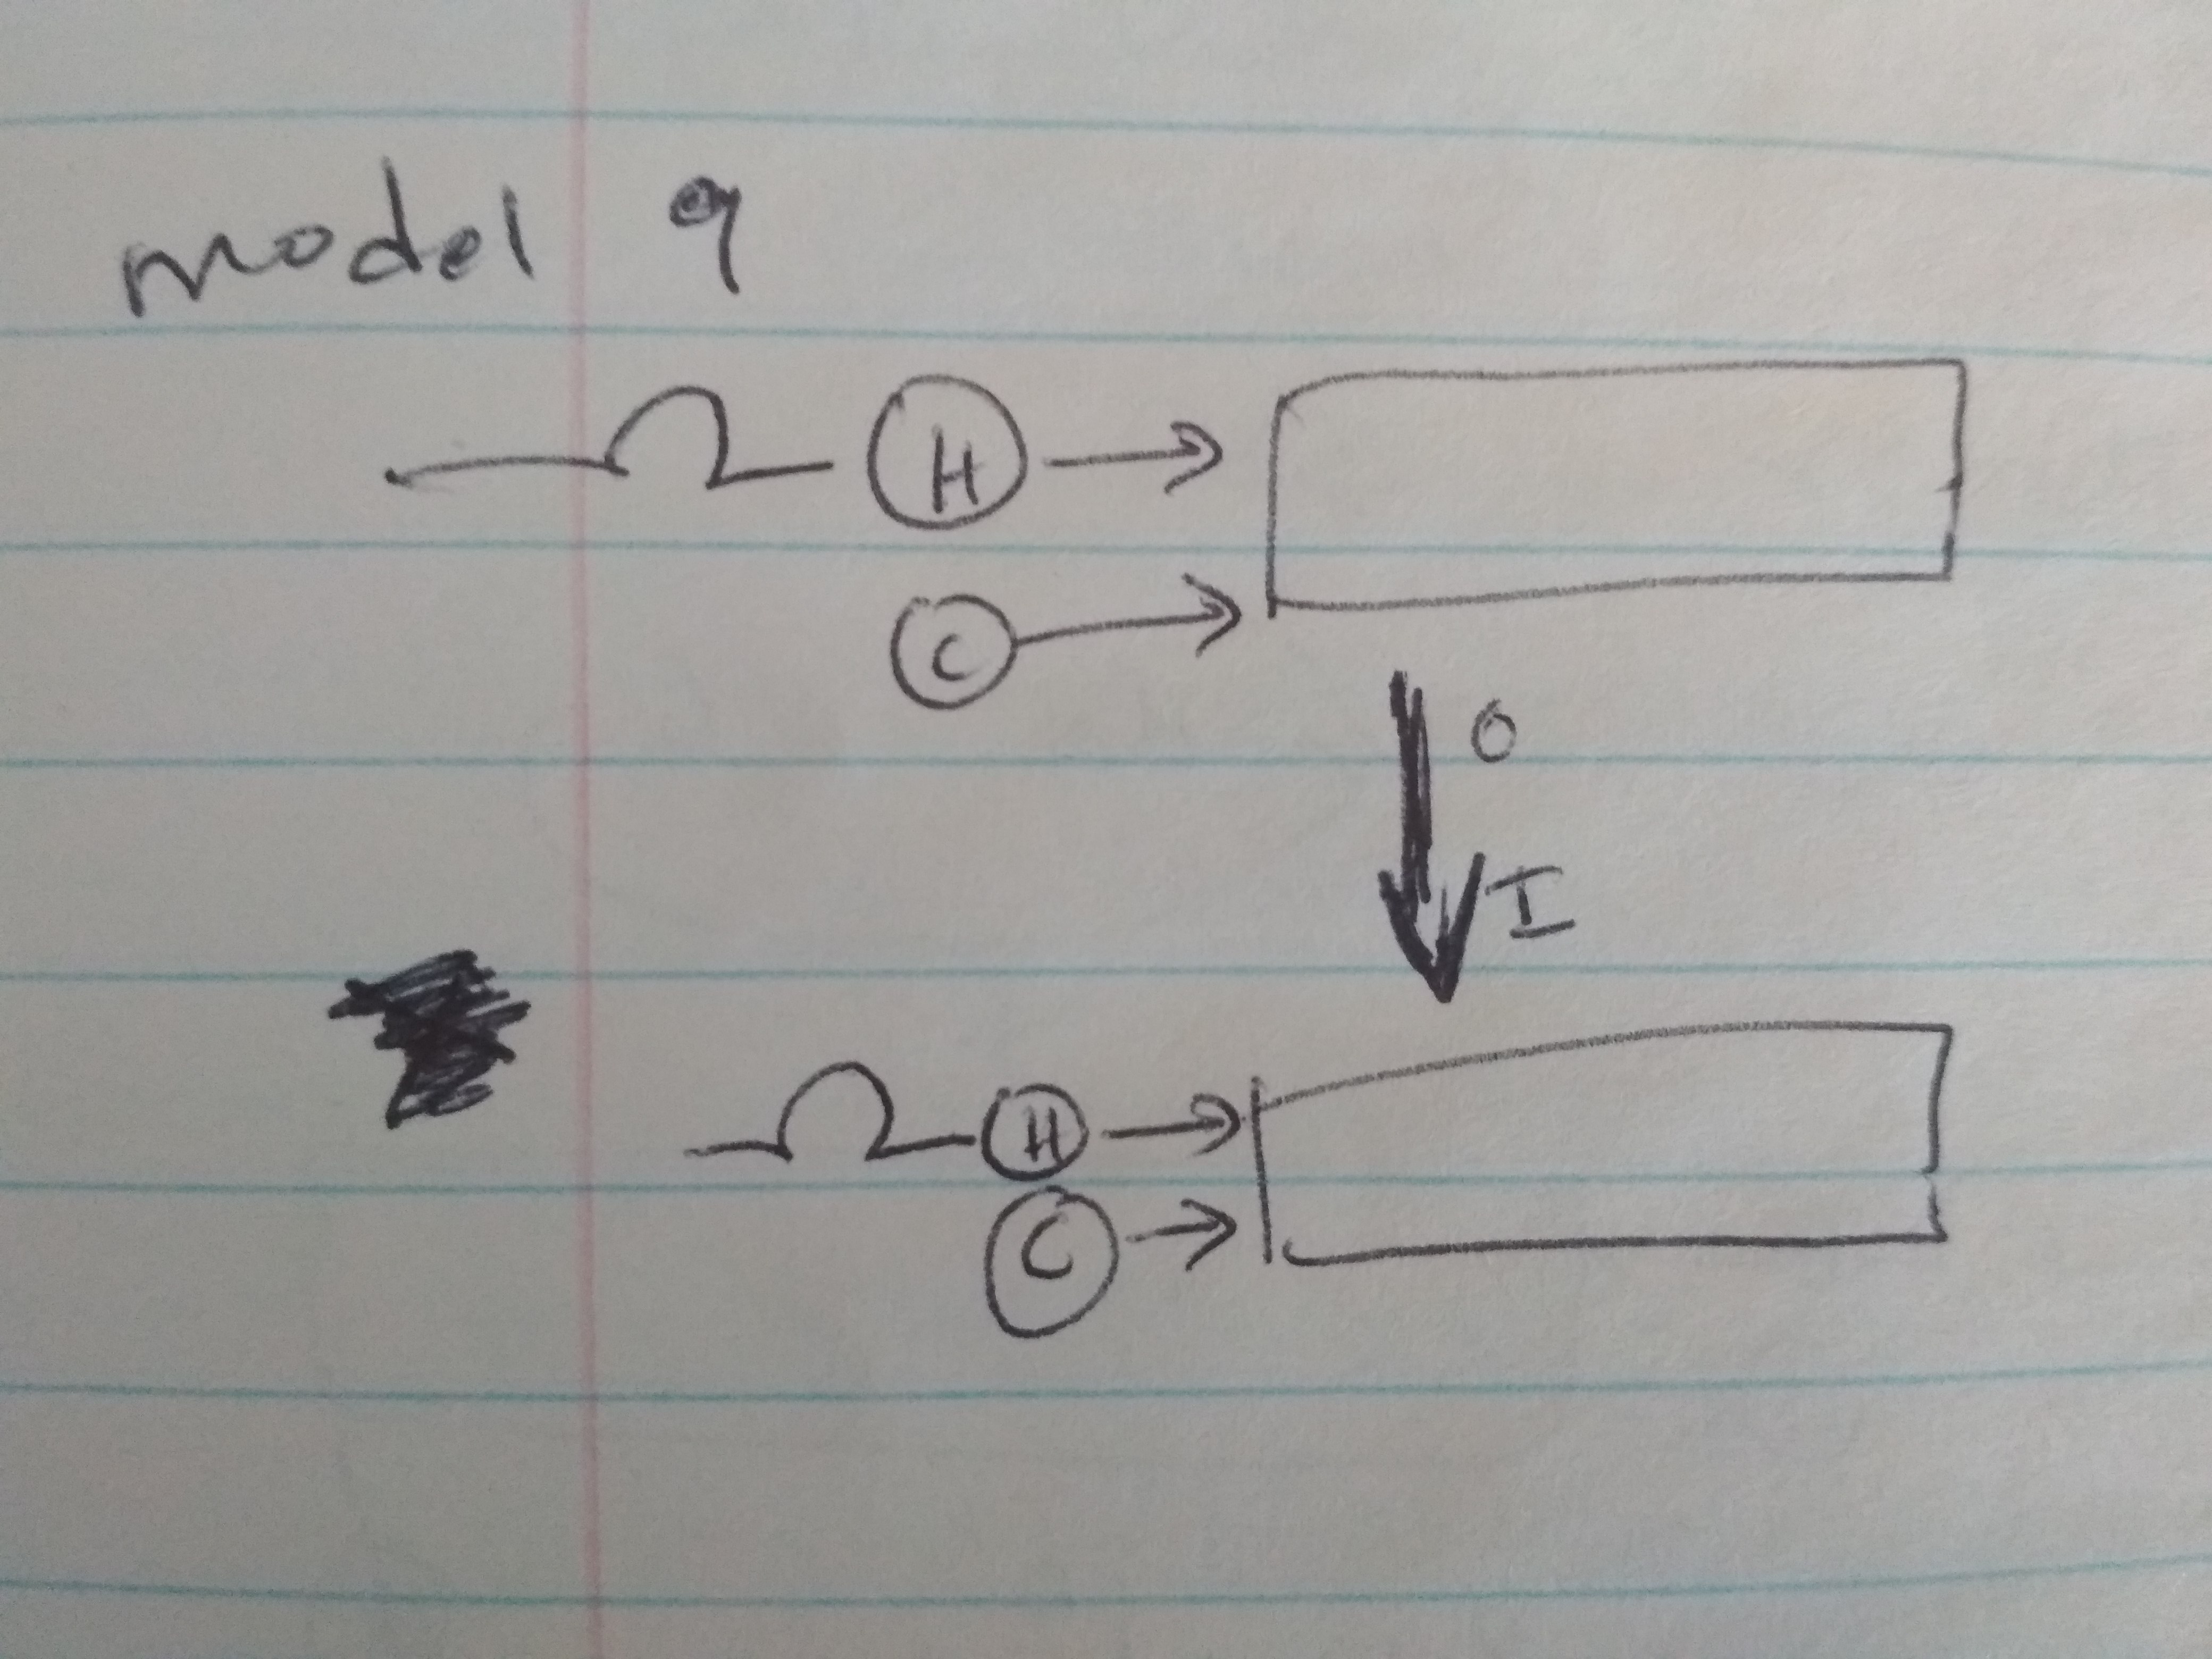 model 9
H
C
O
I
H
C